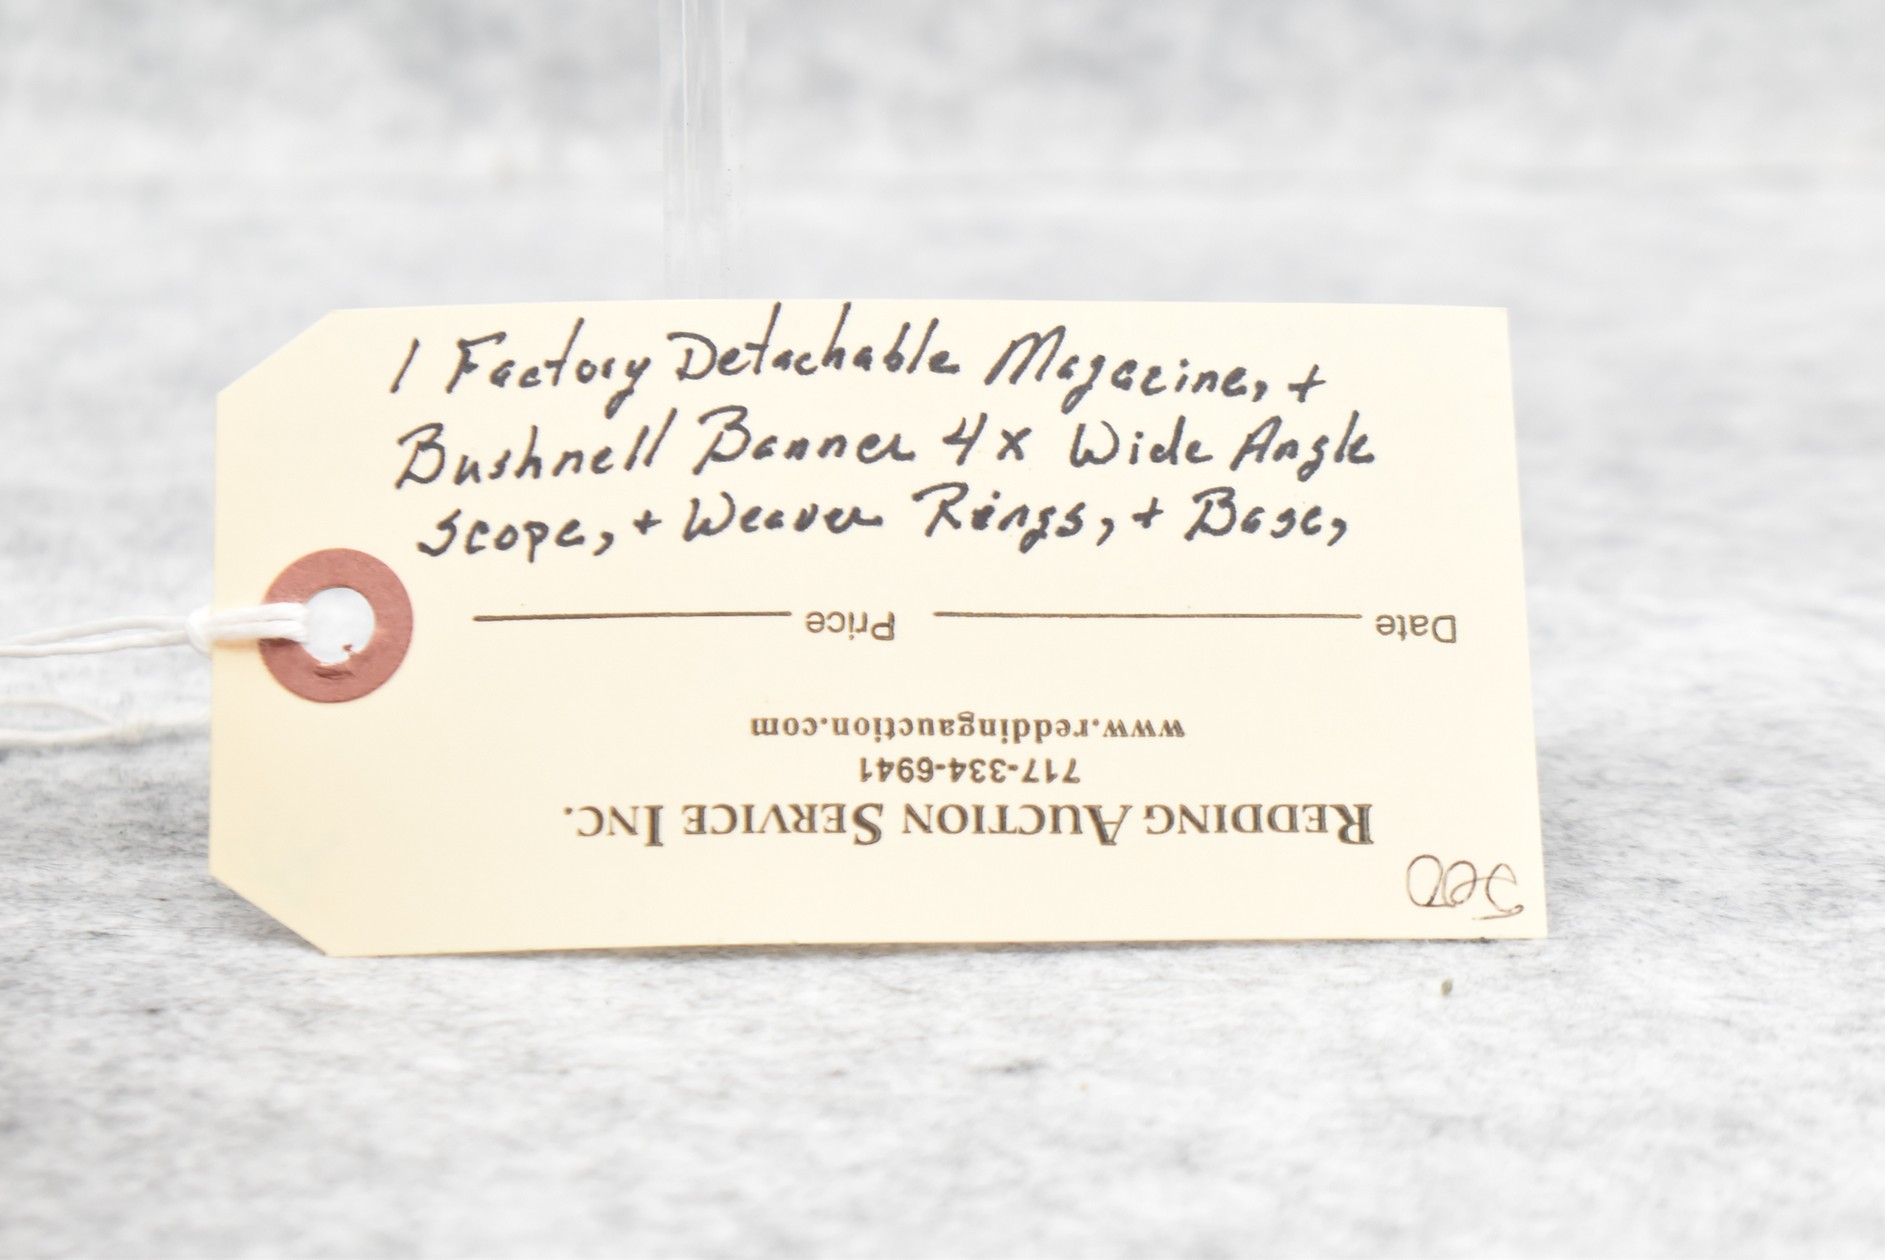 1 Factory Detachable Magazine, +
Bushnell Banner 4x Wide Angle
Scope, + Weaver Rings, + Base,
Date Price
www.reddingauction.com
717-334-6941
REDDING AUCTION SERVICE INC.